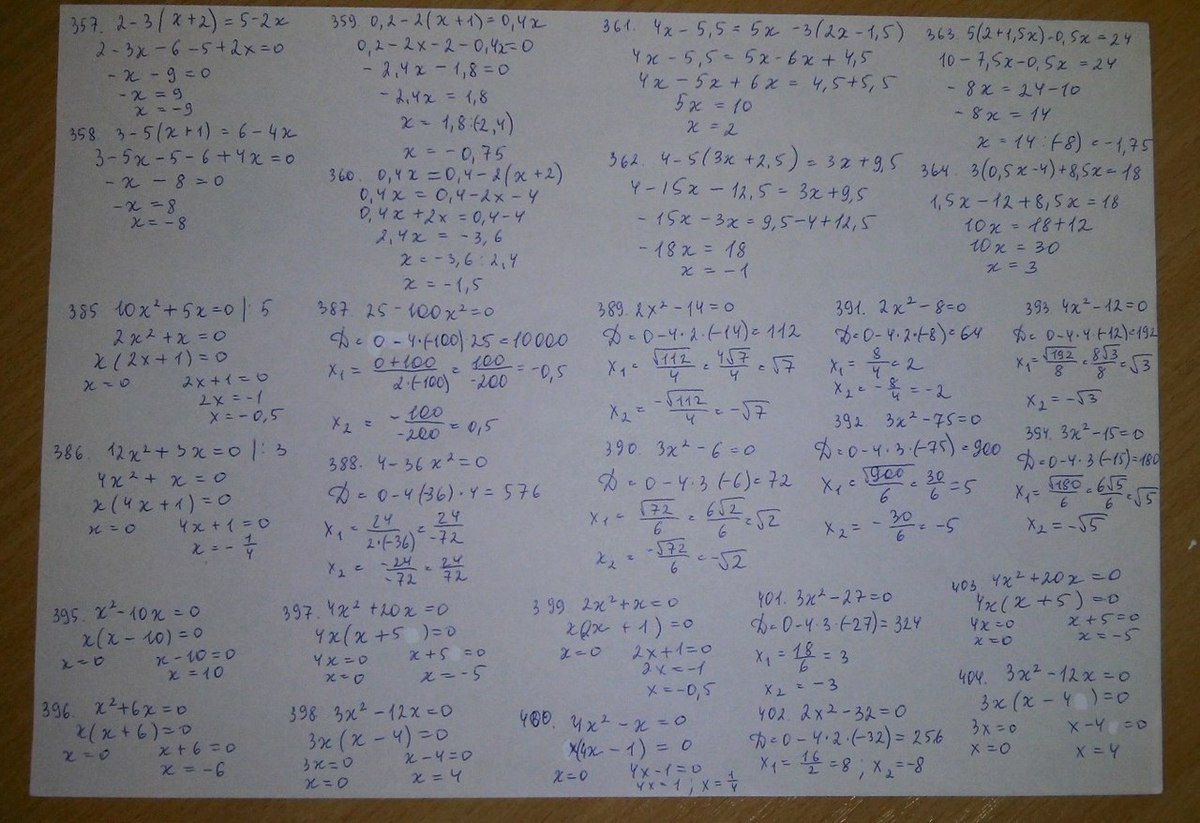 357. 2-3(x+2)=5-2x
2-3x-6-5+2x=0
-x-9=0
-x=9
x=-9
358. 3-5(x+1)=6-4x
3-5x-5-6+4x=0
-x-8=0
-x=8
x=-8
359. 0,2-2(x+1)=0,4x
0,2-2x-2-0,4x=0
-2,4x-1,8=0
-2,4x=1,8
x=1,8:(-2,4)
x=-0,75
360. 0,4x=0,4-2(x+2)
0,4x=0,4-2x-4
0,4x+2x=0,4-4
2,4x=-3,6
x=-3,6:2,4
x=-1,5
361. 4x-5,5=5x-3(2x-1,5)
4x-5,5=5x-6x+4,5
4x-5x+6x=4,5+5,5
5x=10
x=2
362. 4-5(3x+2,5)=3x+9,5
4-15x-12,5=3x+9,5
-15x-3x=9,5-4+12,5
-18x=18
x=-1
363. 5(2+1,5x)-0,5x=24
10-7,5x-0,5x=24
-8x=24-10
-8x=14
x=14:(-8)=-1,75
364. 3(0,5x-4)+8,5x=18
1,5x-12+8,5x=18
10x=18+12
10x=30
x=3
385 10x²+5x=0|:5
2x²+x=0
x(2x+1)=0
x=0 2x+1=0
2x=-1
x=-0,5
386. 12x²+3x=0|:3
4x²+x=0
x(4x+1)=0
x=0 4x+1=0
x=-1/4
387. 25-100x²=0
D=0-4·(-100)25=10000
x₁=(0+100)/(2·(-100))=100/-200=-0,5
x₂=-100/-200=0,5
388. 4-36x²=0
D=0-4(36)·4=576
x₁=24/(2·(-36))=24/-72
x₂=-24/-72=24/72
389. 2x²-14=0
D=0-4·2·(-14)=112
x₁=√112/4=4√7/4=√7
x₂=-√112/4=-√7
390. 3x²-6=0
D=0-4·3(-6)=72
x₁=√72/6=6√2/6=√2
x₂=-√72/6=-√2
391. 2x²-8=0
D=0-4·2·(-8)=64
x₁=8/4=2
x₂=-8/4=-2
392 3x²-75=0
D=0-4·3·(-75)=900
x₁=√900/6=30/6=5
x₂=-30/6=-5
393. 4x²-12=0
D=0-4·4(-12)=192
x₁=√192/8=8√3/8=√3
x₂=-√3
394. 3x²-15=0
D=0-4·3(-15)=180
x₁=√180/6=6√5/6=√5
x₂=-√5
395. x²-10x=0
x(x-10)=0
x=0 x-10=0
x=10
396. x²+6x=0
x(x+6)=0
x=0 x+6=0
x=-6
397. 4x²+20x=0
4x(x+5)=0
4x=0 x+5=0
x=0 x=-5
398 3x²-12x=0
3x(x-4)=0
3x=0 x-4=0
x=0 x=4
399 2x²+x=0
x(2x+1)=0
x=0 2x+1=0
2x=-1
x=-0,5
400. 4x²-x=0
x(4x-1)=0
x=0 4x-1=0
4x=1; x=1/4
401. 3x²-27=0
D=0-4·3·(-27)=324
x₁=18/6=3
x₂=-3
402. 2x²-32=0
D=0-4·2·(-32)=256
x₁=16/2=8; x₂=-8
403 4x²+20x=0
4x(x+5)=0
4x=0 x+5=0
x=0 x=-5
404. 3x²-12x=0
3x(x-4)=0
3x=0 x-4=0
x=0 x=4